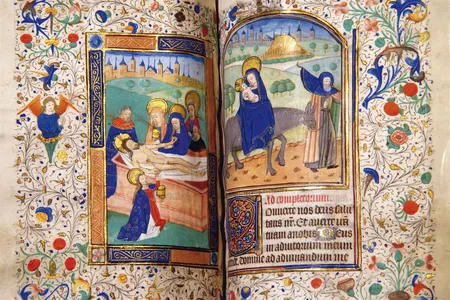 Ad completorium.
Conuerte nos deus salu
taris nr. Et auerte iram
tuam a nobis. Deus
in adiutorium meum in
te domine ad adiuuandum me